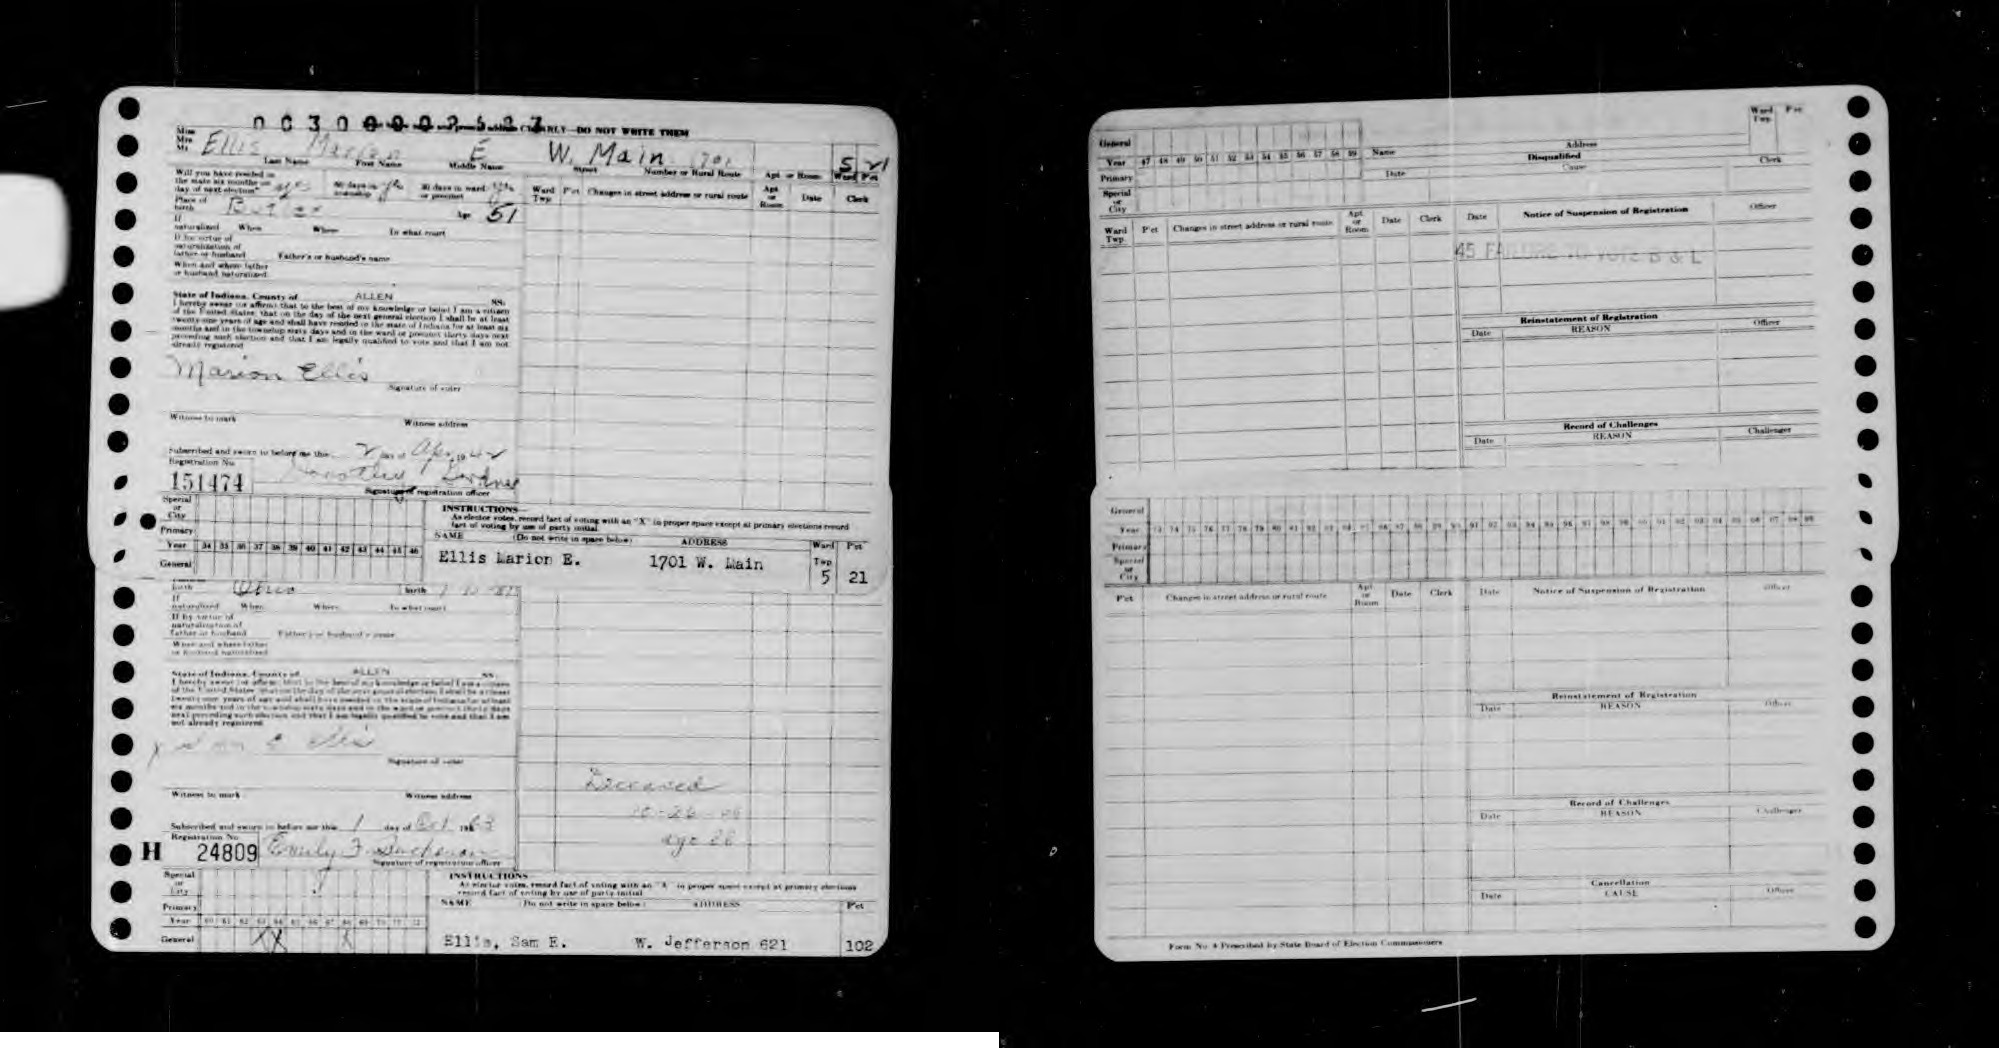 00300002527
CLEARLY—DO NOT WRITE THEM
Miss
Mrs
Mr
Ellis Marion E W. Main 1701 5 21
Last Name First Name Middle Name Street Number or Rural Route Apt or Room Ward Pct
Will you have resided in
the state six months on
day of next election? yes 60 days in township yes 30 days in ward or precinct yes
Place of birth Butler Age 51
Ward Twp Pct Changes in street address or rural route Apt or Room Date Clerk
If naturalized When Where In what court
If by virtue of
naturalization of
father or husband Father's or husband's name
When and where father
or husband naturalized
State of Indiana, County of ALLEN SS:
I hereby swear (or affirm) that to the best of my knowledge or belief I am a citizen
of the United States; that on the day of the next general election I shall be at least
twenty-one years of age and shall have resided in the state of Indiana for at least six
months and in the township sixty days and in the ward or precinct thirty days next
preceding such election and that I am legally qualified to vote and that I am not
already registered
Marion Ellis
Signature of voter
Witness to mark Witness address
Subscribed and sworn to before me this
Registration No.
151474
Dorothy
Signature of registration officer
Special or City
Primary
Year 34 35 36 37 38 39 40 41 42 43 44 45 46
General
INSTRUCTIONS—
As elector votes, record fact of voting with an "X" in proper space except at primary elections record
fact of voting by use of party initial.
NAME (Do not write in space below) ADDRESS Ward Twp Pct
Ellis Marion E. 1701 W. Main 5 21
birth Ohio birth
If naturalized When Where In what court
If by virtue of
naturalization of
father or husband Father's or husband's name
When and where father
or husband naturalized
State of Indiana, County of ALLEN SS:
I hereby swear (or affirm) that to the best of my knowledge or belief I am a citizen
of the United States; that on the day of the next general election I shall be at least
twenty-one years of age and shall have resided in the state of Indiana for at least
six months and in the township sixty days and in the ward or precinct thirty days
next preceding such election and that I am legally qualified to vote and that I am
not already registered
Signature of voter
Deceased
Witness to mark Witness address
Subscribed and sworn to before me this 1 day of Oct 1963
Registration No.
H 24809 Emily F.
Signature of registration officer
Special or City
Primary
Year 60 61 62 63 64 65 66 67 68 69 70 71 72
General X X X
INSTRUCTIONS
As elector votes, record fact of voting with an "X" in proper space except at primary elections
record fact of voting by use of party initial
NAME (Do not write in space below) ADDRESS Pct
Ellis, Sam E. W. Jefferson 621 102
General
Year 47 48 49 50 51 52 53 54 55 56 57 58 59
Primary
Special or City
Name Address Ward Twp. Pct
Disqualified
Date Cause Clerk
Ward Twp. Pct Changes in street address or rural route Apt or Room Date Clerk
Date Notice of Suspension of Registration Officer
45 FAILURE TO VOTE B & L
Reinstatement of Registration
Date REASON Officer
Record of Challenges
Date REASON Challenger
General
Year 73 74 75 76 77 78 79 80 81 82 83 84 85 86 87 88 89 90 91 92 93 94 95 96 97 98 99
Primary
Special or City
Pct Changes in street address or rural route Apt or Room Date Clerk
Date Notice of Suspension of Registration Officer
Reinstatement of Registration
Date REASON Officer
Record of Challenges
Date REASON Challenger
Cancellation
Date CAUSE Officer
Form No. 4 Prescribed by State Board of Election Commissioners